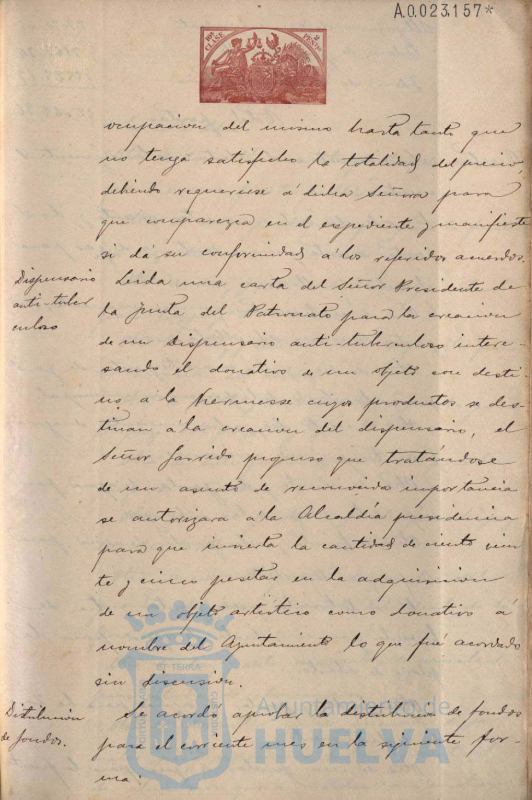 A.0.023.157*
10ª CLASE 2 PESTAS
ocupacion del mismo hasta tanto que
no tenga satisfecho la totalidad del precio,
debiendo requerirse á dicha Señora para
que comparezca en el expediente y manifieste
si dá su conformidad á los referidos acuerdos.
Dispensario
anti-tuber
culoso
Leida una carta del Señor Presidente de
la Junta del Patronato para la creacion
de un Dispensario anti-tuberculoso intere-
sando el donativo de un objeto con desti-
no á la Kermesse cuyos productos se des-
tinan á la creacion del dispensario, el
Señor Garrido propuso que tratándose
de un asunto de reconocida importancia
se autorizara á la Alcaldía presidencia
para que invierta la cantidad de ciento vein
te y cinco pesetas en la adquisicion
de un objeto artístico como donativo á
nombre del Ayuntamiento lo que fué acordado
sin discusion.
Distribucion
de fondos.
Se acordó aprobar la distribucion de fondos
para el corriente mes en la siguiente for-
ma:
Ayuntamiento de
HUELVA